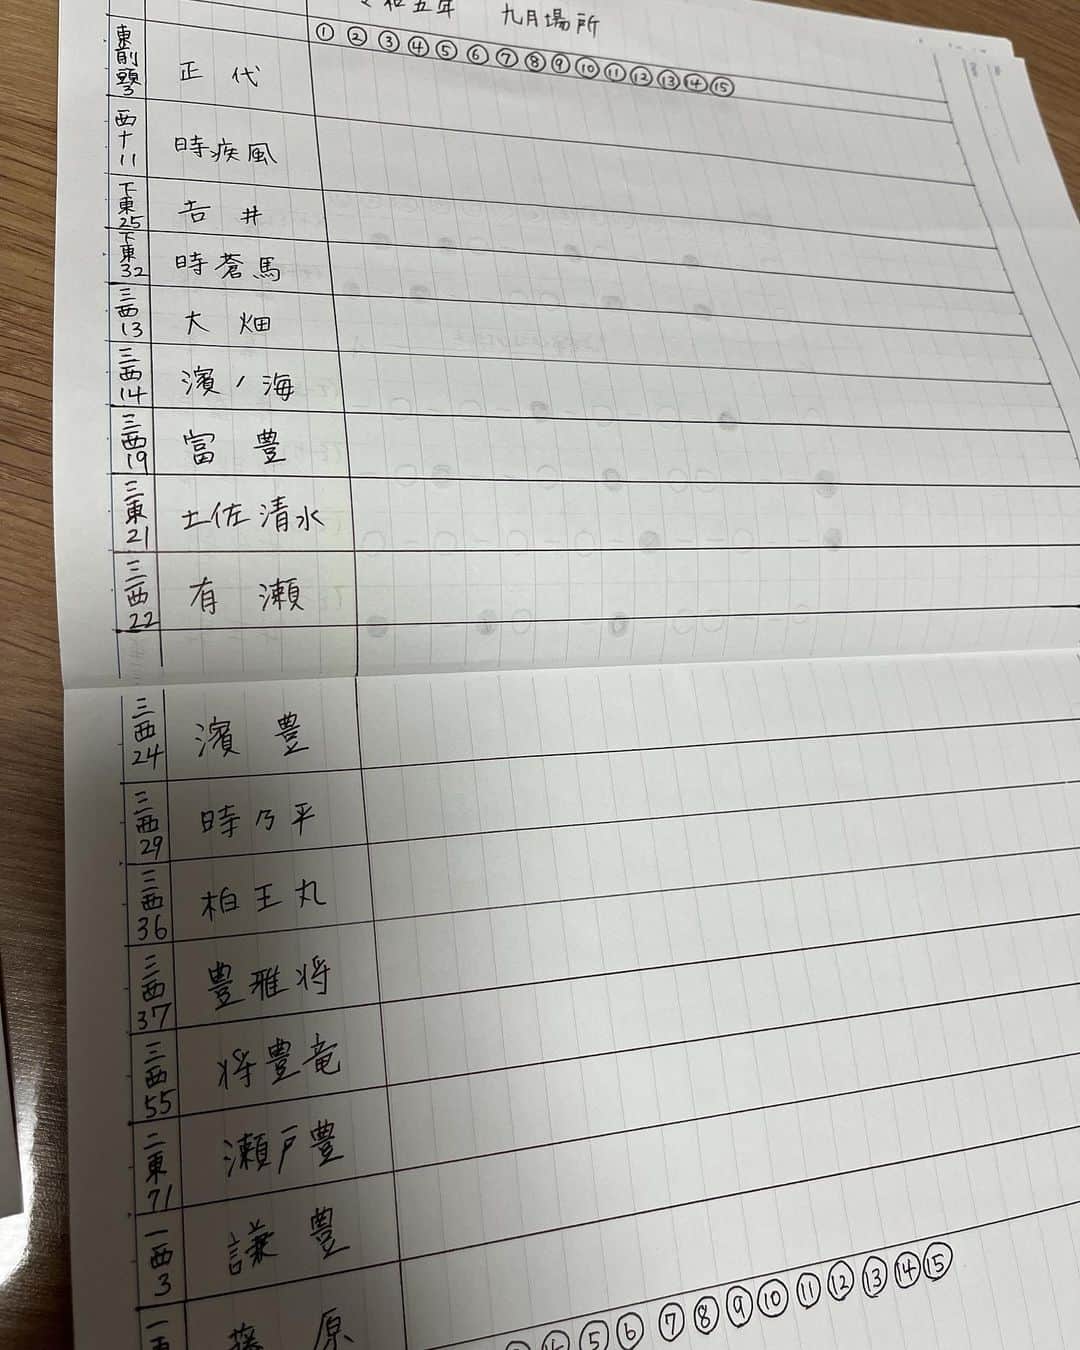 令和五年 九月場所
① ② ③ ④ ⑤ ⑥ ⑦ ⑧ ⑨ ⑩ ⑪ ⑫ ⑬ ⑭ ⑮
東前頭3 正代
西十11 時疾風
下東25 吉井
下東32 時蒼馬
三西13 大畑
三西14 濱ノ海
三西19 富豊
三東21 土佐清水
三西22 有瀬
三西24 濱豊
三西29 時乃平
三西36 柏王丸
三西37 豊雅将
三西55 将豊竜
二東71 瀬戸豊
一西3 謙豊
一西 藤原
⑤ ⑥ ⑦ ⑧ ⑨ ⑩ ⑪ ⑫ ⑬ ⑭ ⑮